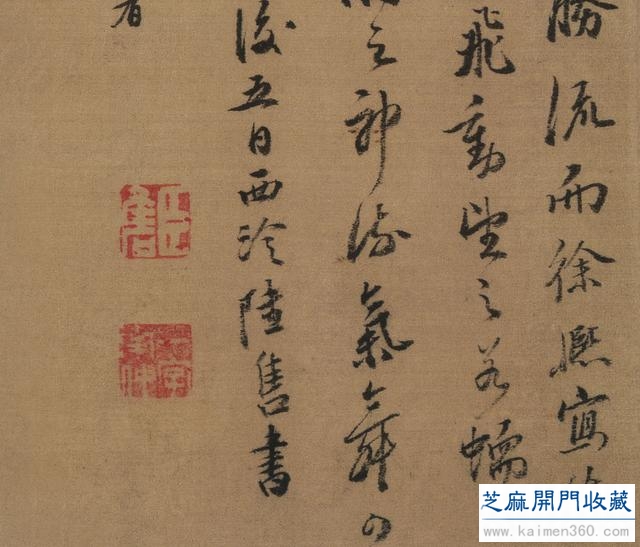 勝流而徐熙寫
飛動望之若蠕
之神氣
後五日西泠陸售書
者
芝麻開門收藏
www.kaimen360.com